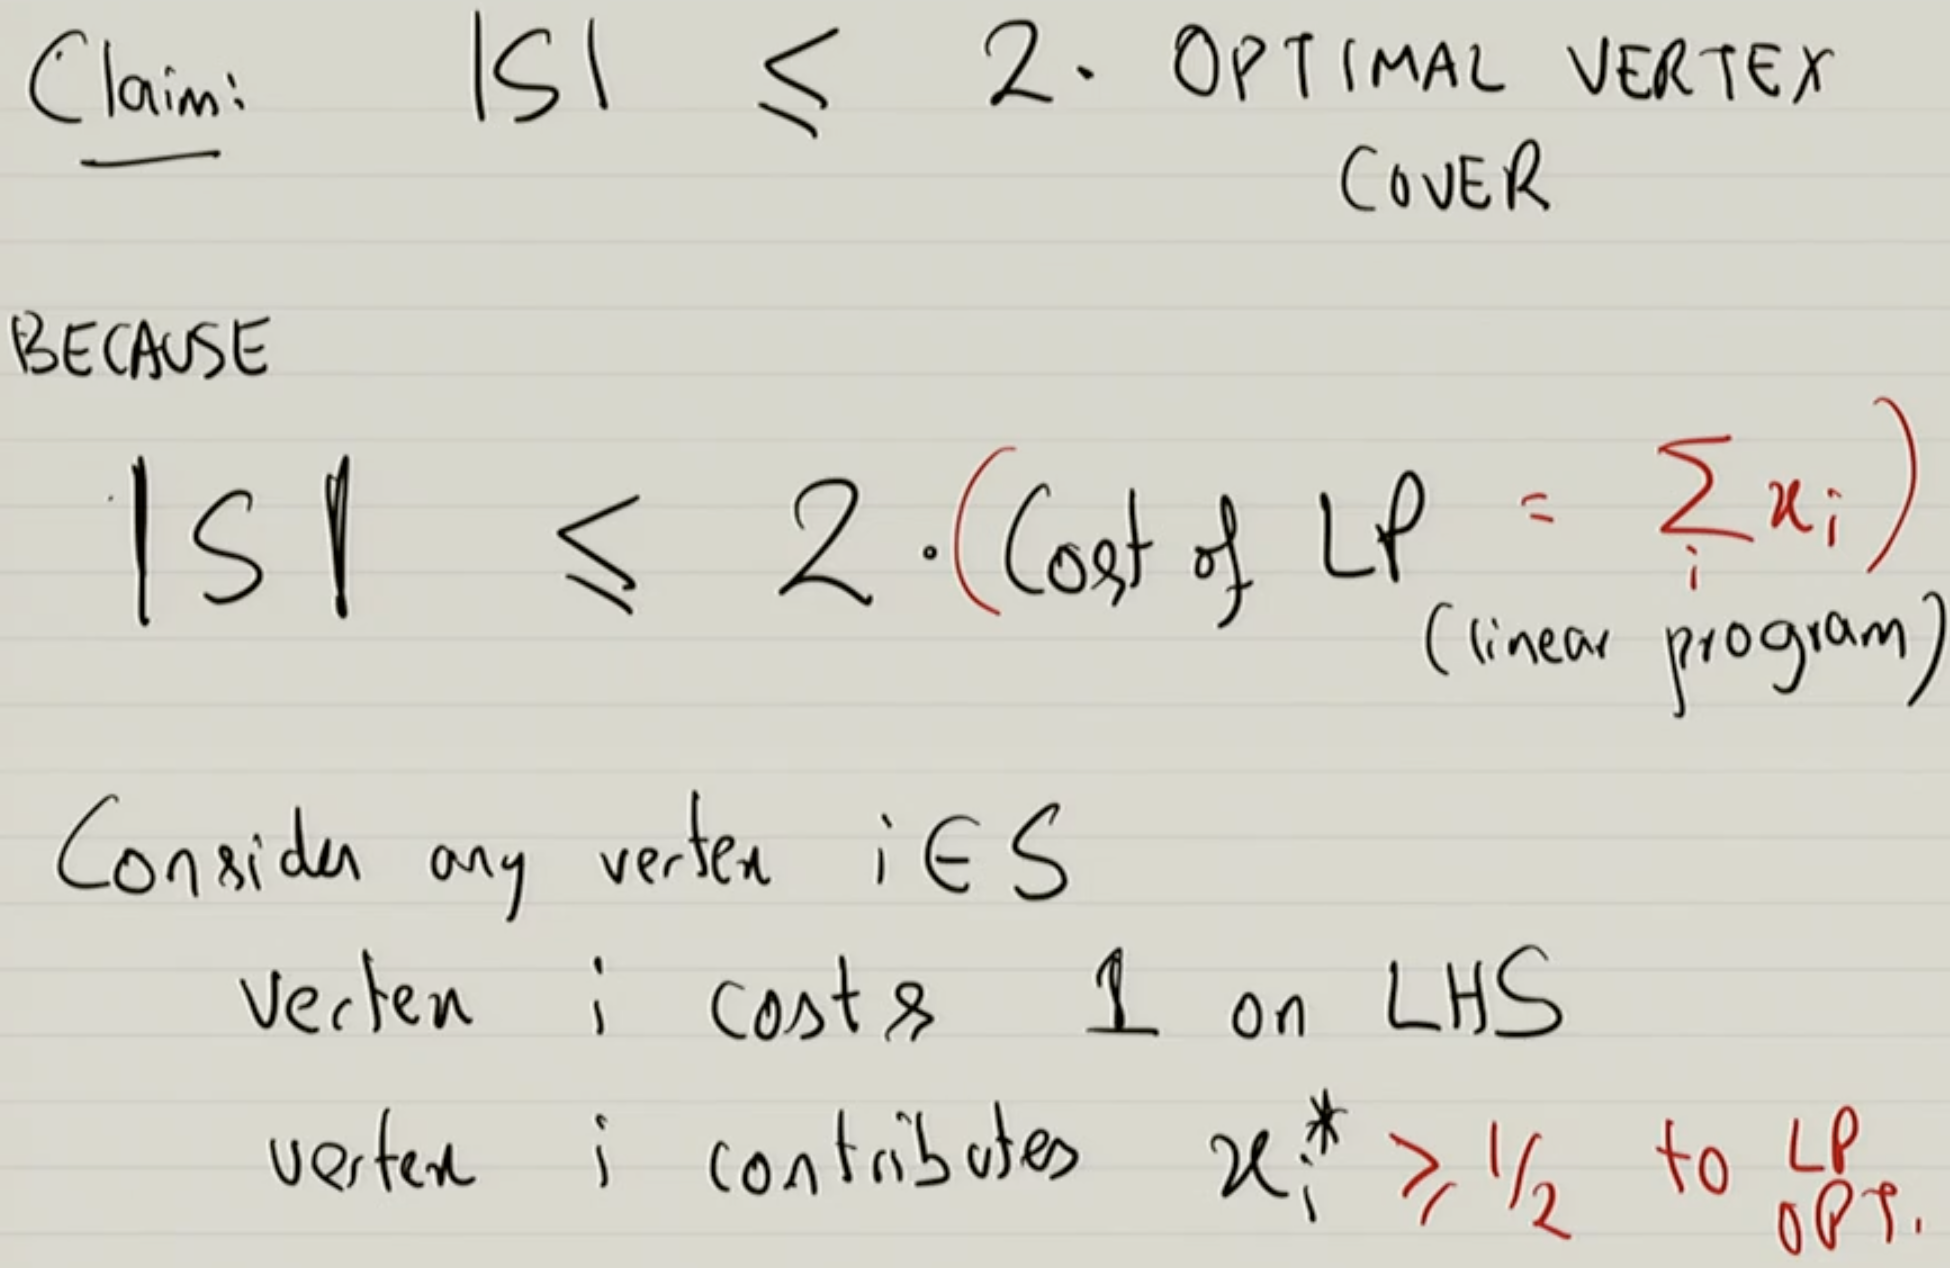 Claim: |S| ≤ 2. OPTIMAL VERTEX
COVER
BECAUSE
|S| ≤ 2 · (Cost of LP = ∑ᵢ xᵢ)
(linear program)
Consider any vertex i ∈ S
vertex i costs 1 on LHS
vertex i contributes xᵢ* ≥ 1/2 to LP
OPT.